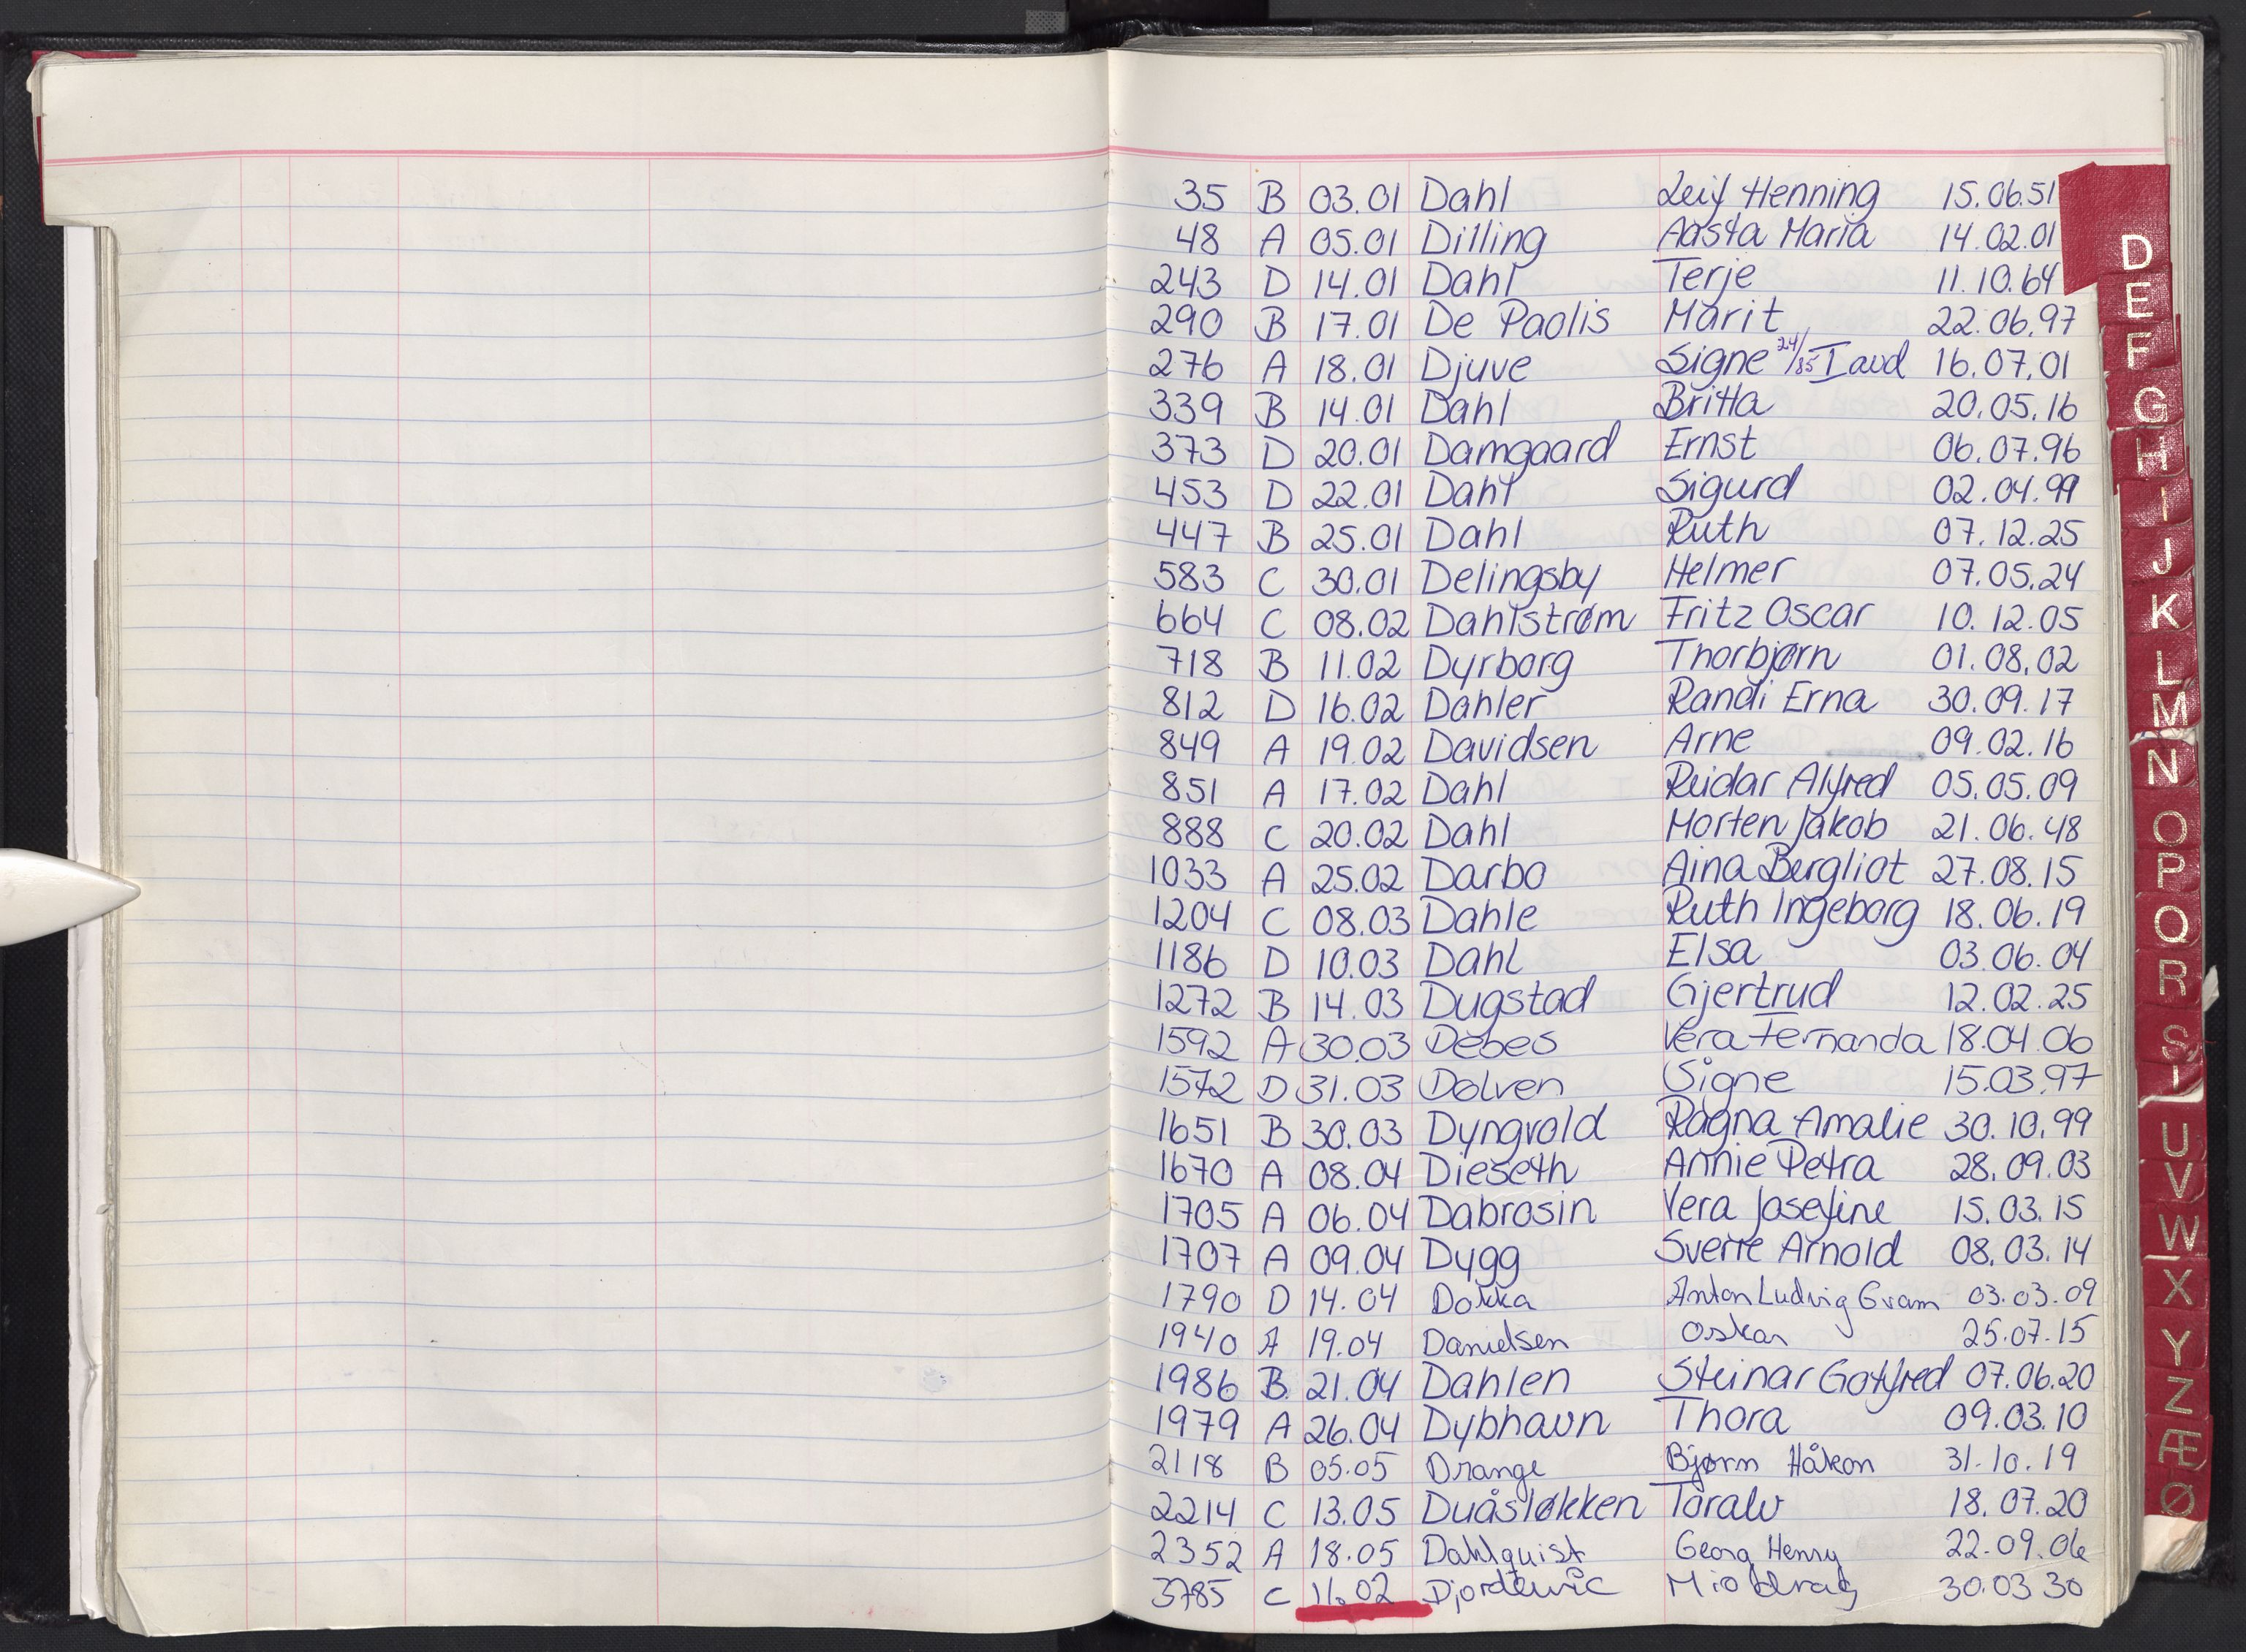 35 B 03.01 Dahl Leif Henning 15.06.51
48 A 05.01 Dilling Aasta Maria 14.02.01
243 D 14.01 Dahl Terje 11.10.64
290 B 17.01 De Paolis Marit 22.06.97
276 A 18.01 Djuve Signe 24/85 I avd 16.07.01
339 B 14.01 Dahl Britta 20.05.16
373 D 20.01 Damgaard Ernst 06.07.96
453 D 22.01 Dahl Sigurd 02.04.99
447 B 25.01 Dahl Ruth 07.12.25
583 C 30.01 Delingsby Helmer 07.05.24
664 C 08.02 Dahlstrøm Fritz Oscar 10.12.05
718 B 11.02 Dyrborg Thorbjørn 01.08.02
812 D 16.02 Dahler Randi Erna 30.09.17
849 A 19.02 Davidsen Arne 09.02.16
851 A 17.02 Dahl Reidar Alfred 05.05.09
888 C 20.02 Dahl Morten Jakob 21.06.48
1033 A 25.02 Darbo Aina Bergliot 27.08.15
1204 C 08.03 Dahle Ruth Ingeborg 18.06.19
1186 D 10.03 Dahl Elsa 03.06.04
1272 B 14.03 Dugstad Gjertrud 12.02.25
1592 A 30.03 Debes Vera Fernanda 18.04.06
1572 D 31.03 Dolven Signe 15.03.97
1651 B 30.03 Dyngvold Ragna Amalie 30.10.99
1670 A 08.04 Dieseth Annie Petra 28.09.03
1705 A 06.04 Dabrosin Vera Josefine 15.03.15
1707 A 09.04 Dygg Sverre Arnold 08.03.14
1790 D 14.04 Dokka Anton Ludvig Gram 03.03.09
1940 A 19.04 Danielsen Oskar 25.07.15
1986 B 21.04 Dahlen Steinar Gotfred 07.06.20
1979 A 26.04 Dybhavn Thora 09.03.10
2118 B 05.05 Drange Bjørn Håkon 31.10.19
2214 C 13.05 Duåsløkken Toralv 18.07.20
2352 A 18.05 Dahlquist Georg Henry 22.09.06
3785 C 11.02 Djordevic Miodrag 30.03 30
D
E
F
G
H
I
J
K
L
M
N
O
P
Q
R
S
T
U
V
W
X
Y
Z
Æ
Ø